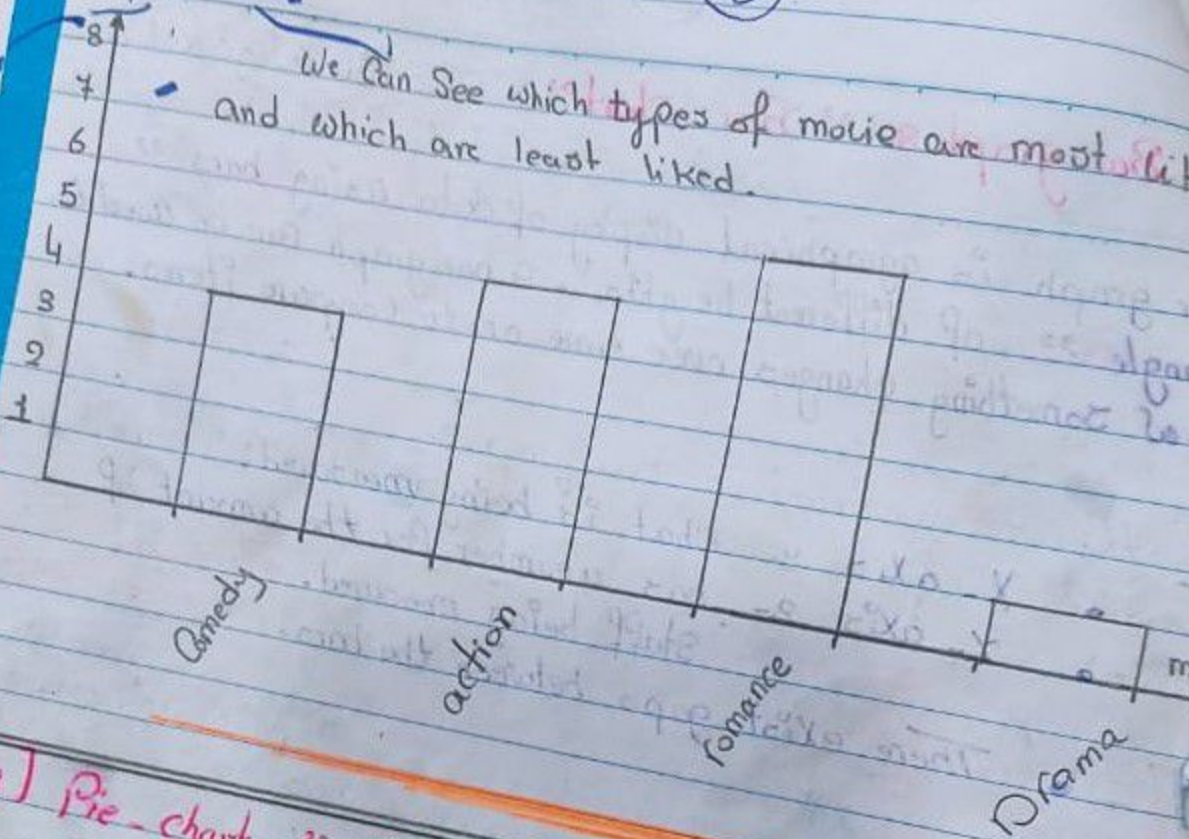 8
We Can See which types of movie are most
7
and which are least liked.
6
5
4
3
2
1
Comedy
action
romance
Drama
Pie-chart